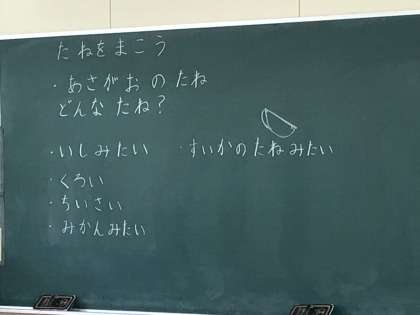 たねをまこう
・あさがおのたね
どんなたね?
・いしみたい ・すいかのたねみたい
・くろい
・ちいさい
・みかんみたい